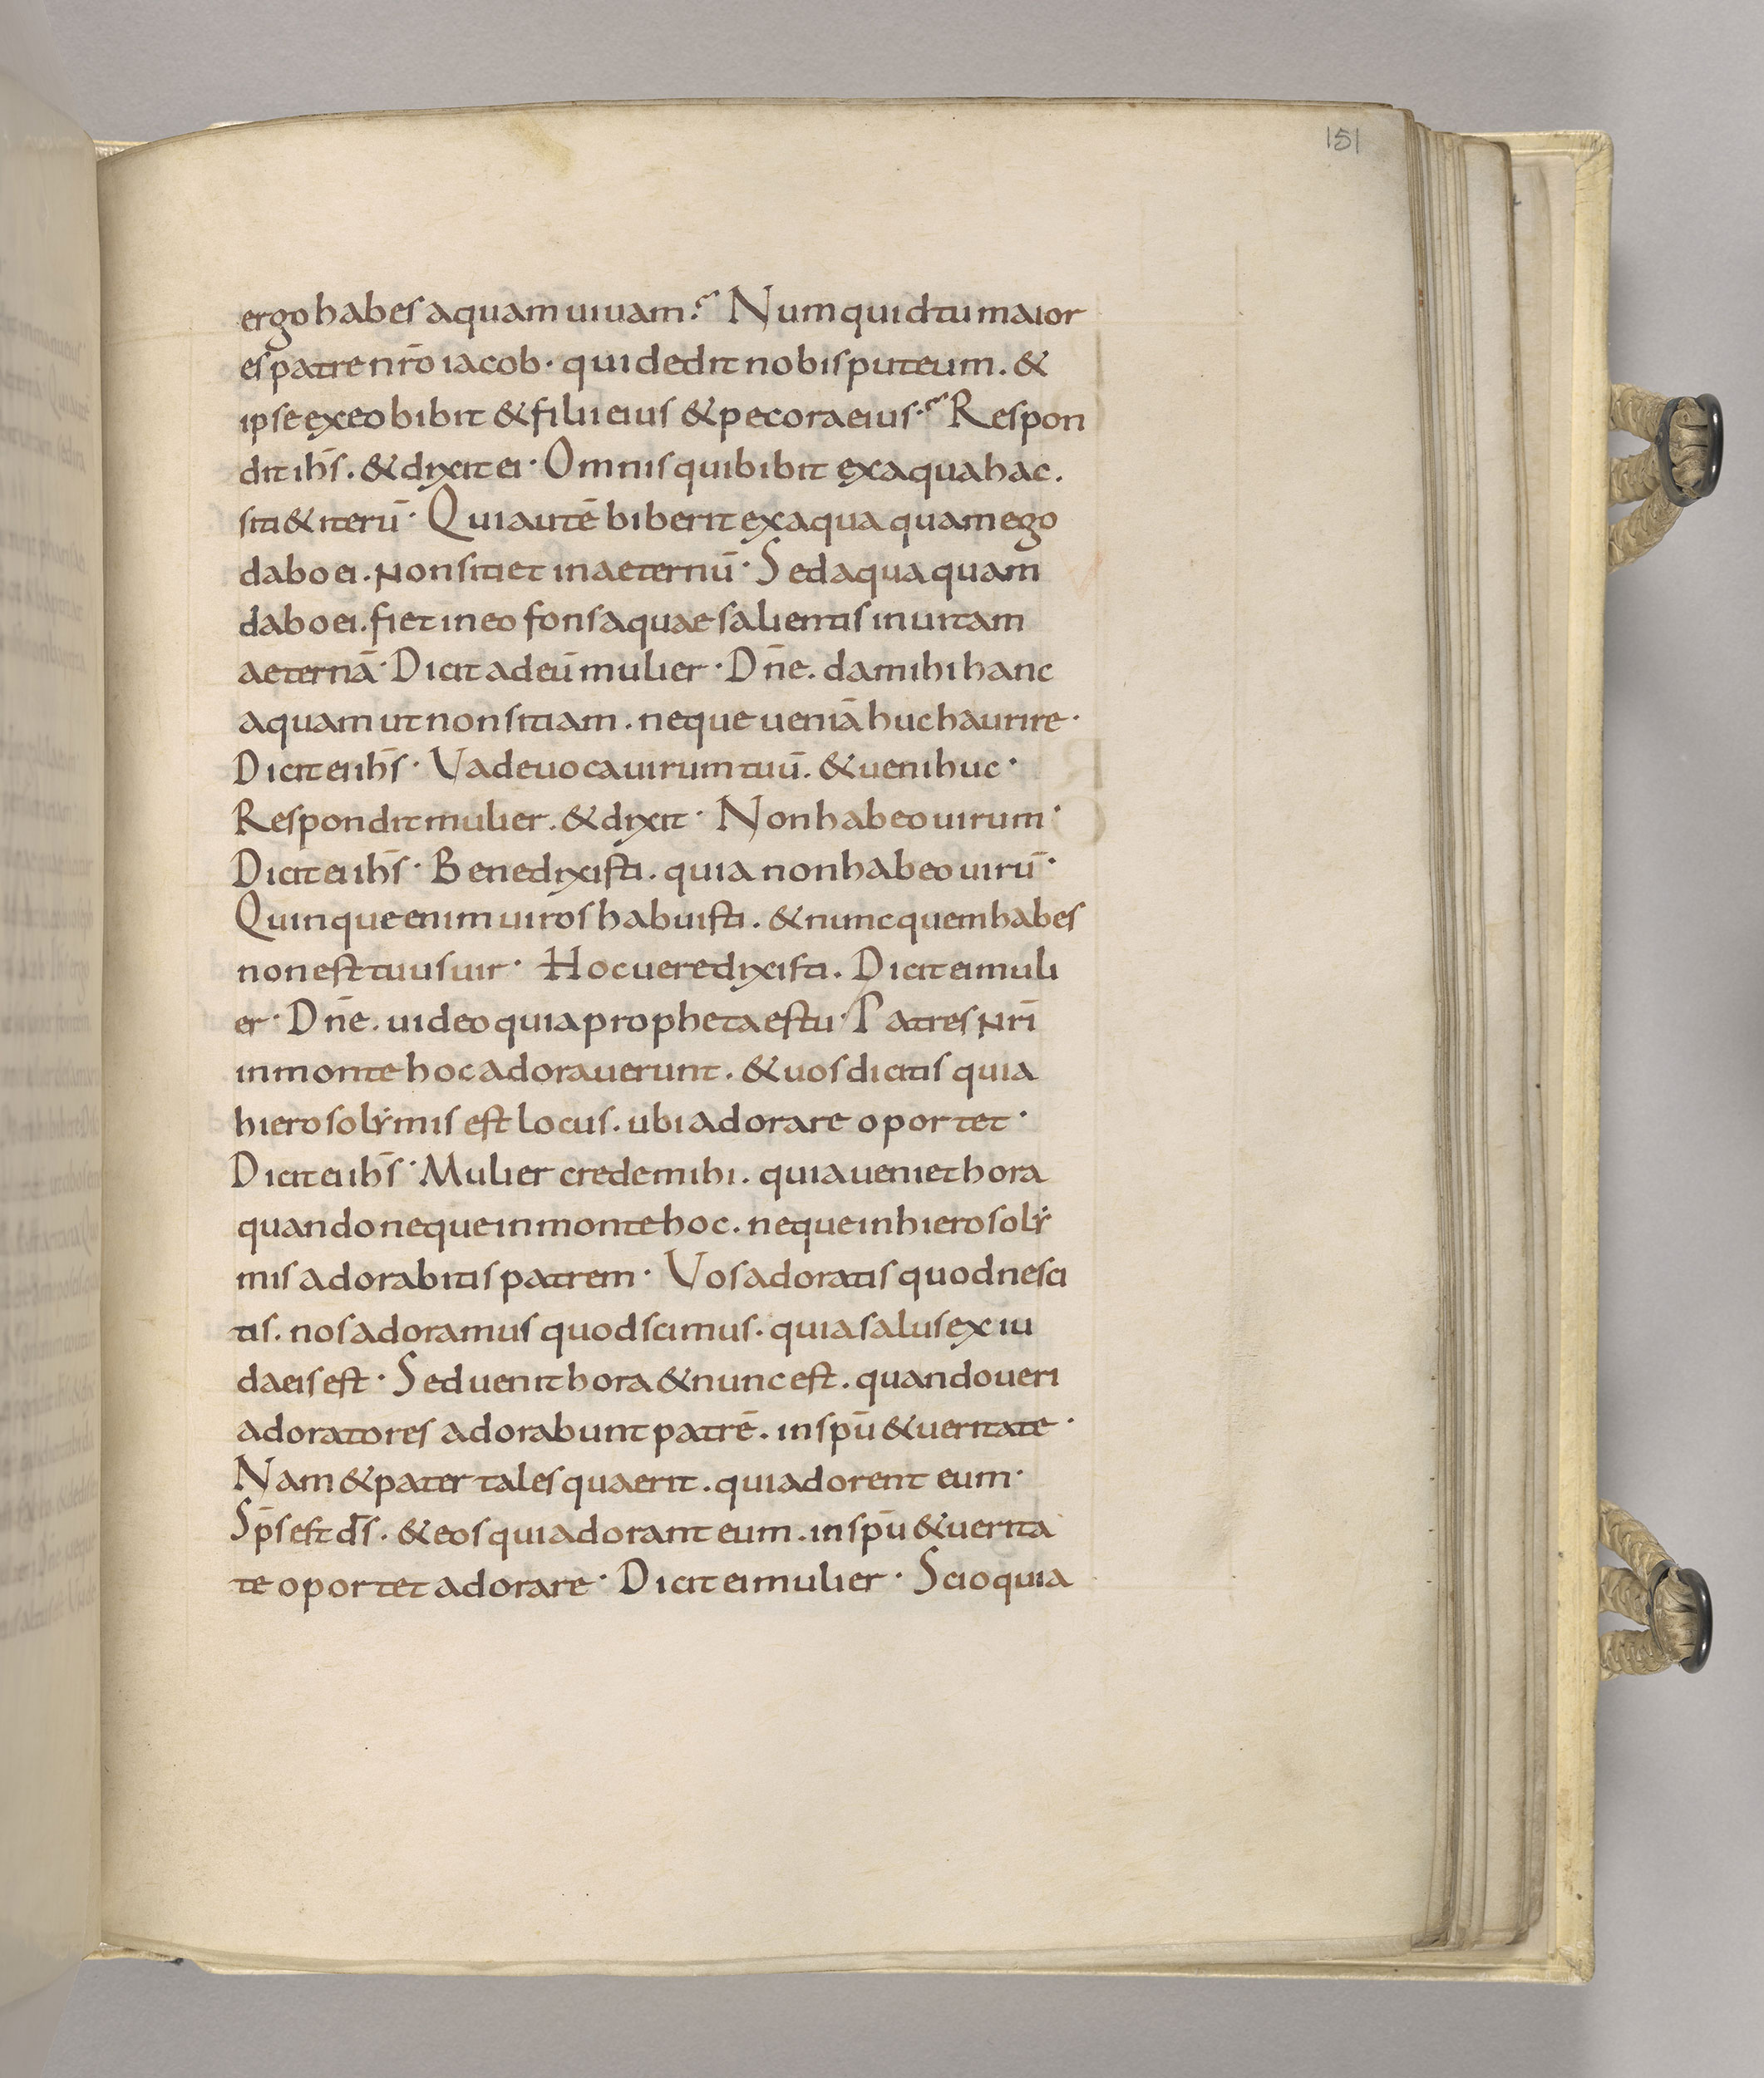 151
ergo habes aquam uiuam? Numquid tu maior
es patre nr̄o iacob· qui dedit nobis puteum. &
ipse ex eo bibit & filii eius & pecora eius? Respon
dit ih̄s. & dixit ei· Omnis qui bibit ex aqua hac.
siti& iterū· Qui autē biberit ex aqua quam ego
dabo ei. non sitiet in aeternū· Sed aqua quam
dabo ei. fiet in eo fons aquae salientis in uitam
aeternā· Dicit ad eū mulier· Dn̄e. da mihi hanc
aquam ut non sitiam. neque ueniā huc haurire·
Dicit ei ih̄s· Vade uoca uirum tuū. & ueni huc·
Respondit mulier. & dixit· Non habeo uirum·
Dicit ei ih̄s· Bene dixisti. quia non habeo uirū·
Quinque enim uiros habuisti. & nunc quem habes
non est tuus uir· Hoc uere dixisti. Dicit ei muli
er· Dn̄e. uideo quia propheta es tu· Patres nr̄i
in monte hoc adorauerunt. & uos dicitis quia
hierosolẏmis est locus. ubi adorare oportet·
Dicit ei ih̄s· Mulier crede mihi. quia ueniet hora
quando neque in monte hoc. neque in hierosolẏ
mis adorabitis patrem· Vos adoratis quod nesci
tis. nos adoramus quod scimus. quia salus ex iu
daeis est· Sed uenit hora & nunc est. quando ueri
adoratores adorabunt patrē. in sp̄u & ueritate·
Nam & pater tales quaerit. qui adorent eum·
Sp̄s est d̄s. & eos qui adorant eum. in sp̄u & uerita
te oportet adorare· Dicit ei mulier· Scio quia